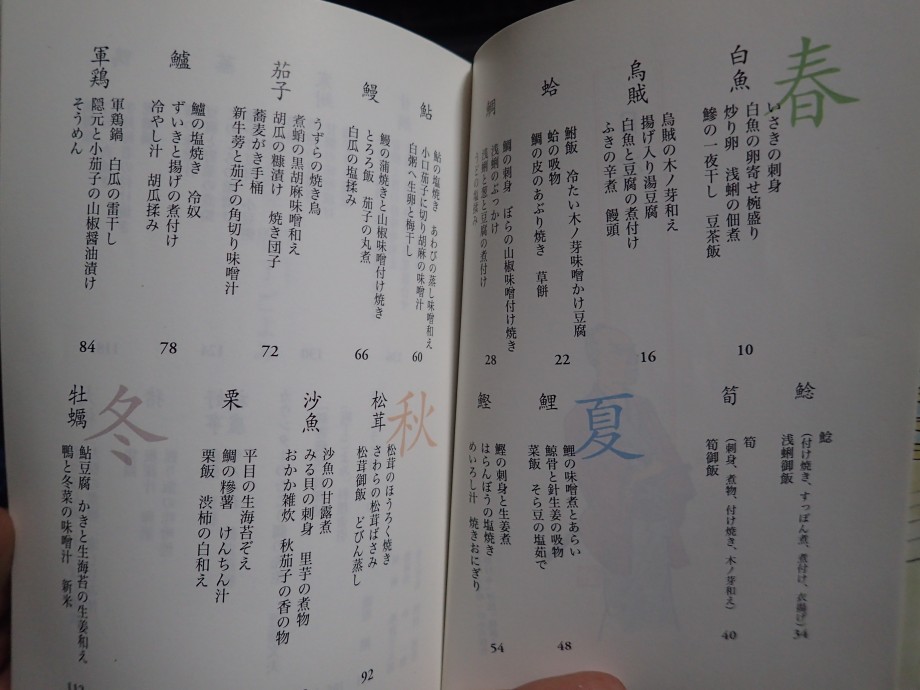 春
白魚
いさきの刺身
白魚の卵寄せ椀盛り
炒り卵 浅蜊の佃煮
鯵の一夜干し 豆茶飯
10
烏賊
烏賊の木ノ芽和え
揚げ入り湯豆腐
白魚と豆腐の煮付け
ふきの辛煮 饅頭
16
蛤
鮒飯 冷たい木ノ芽味噌かけ豆腐
蛤の吸物
鯛の皮のあぶり焼き 草餅
22
鯛
鯛の刺身 ぼらの山椒味噌付け焼き
浅蜊のぶっかけ
浅蜊と葱と豆腐の煮付け
28
鯰
鯰
(付け焼き、すっぽん煮、煮付け、衣揚げ)
浅蜊御飯
34
筍
筍
(刺身、煮物、付け焼き、木ノ芽和え)
筍御飯
40
夏
鯉
鯉の味噌煮とあらい
鯨骨と針生姜の吸物
菜飯 そら豆の塩茹で
48
鰹
鰹の刺身と生姜煮
はらんぼうの塩焼き
めいろし汁 焼きおにぎり
54
鮎
鮎の塩焼き あわびの蒸し味噌和え
小口茄子に切り胡麻の味噌汁
白粥へ生卵と梅干し
60
鰻
鰻の蒲焼きと山椒味噌付け焼き
とろろ飯 茄子の丸煮
白瓜の塩揉み
66
茄子
うずらの焼き鳥
煮蛸の黒胡麻味噌和え
胡瓜の糠漬け 焼き団子
蕎麦がき手桶
新牛蒡と茄子の角切り味噌汁
72
鱸
鱸の塩焼き 冷奴
ずいきと揚げの煮付け
冷やし汁 胡瓜揉み
78
軍鶏
軍鶏鍋 白瓜の雷干し
隠元と小茄子の山椒醤油漬け
そうめん
84
秋
松茸
松茸のほうろく焼き
さわらの松茸ばさみ
松茸御飯 どびん蒸し
92
沙魚
沙魚の甘露煮
みる貝の刺身 里芋の煮物
おかか雑炊 秋茄子の香の物
栗
平目の生海苔ぞえ
鯛の糝薯 けんちん汁
栗飯 渋柿の白和え
冬
牡蠣
鮎豆腐 かきと生海苔の生姜和え
鴨と冬菜の味噌汁 新米
112